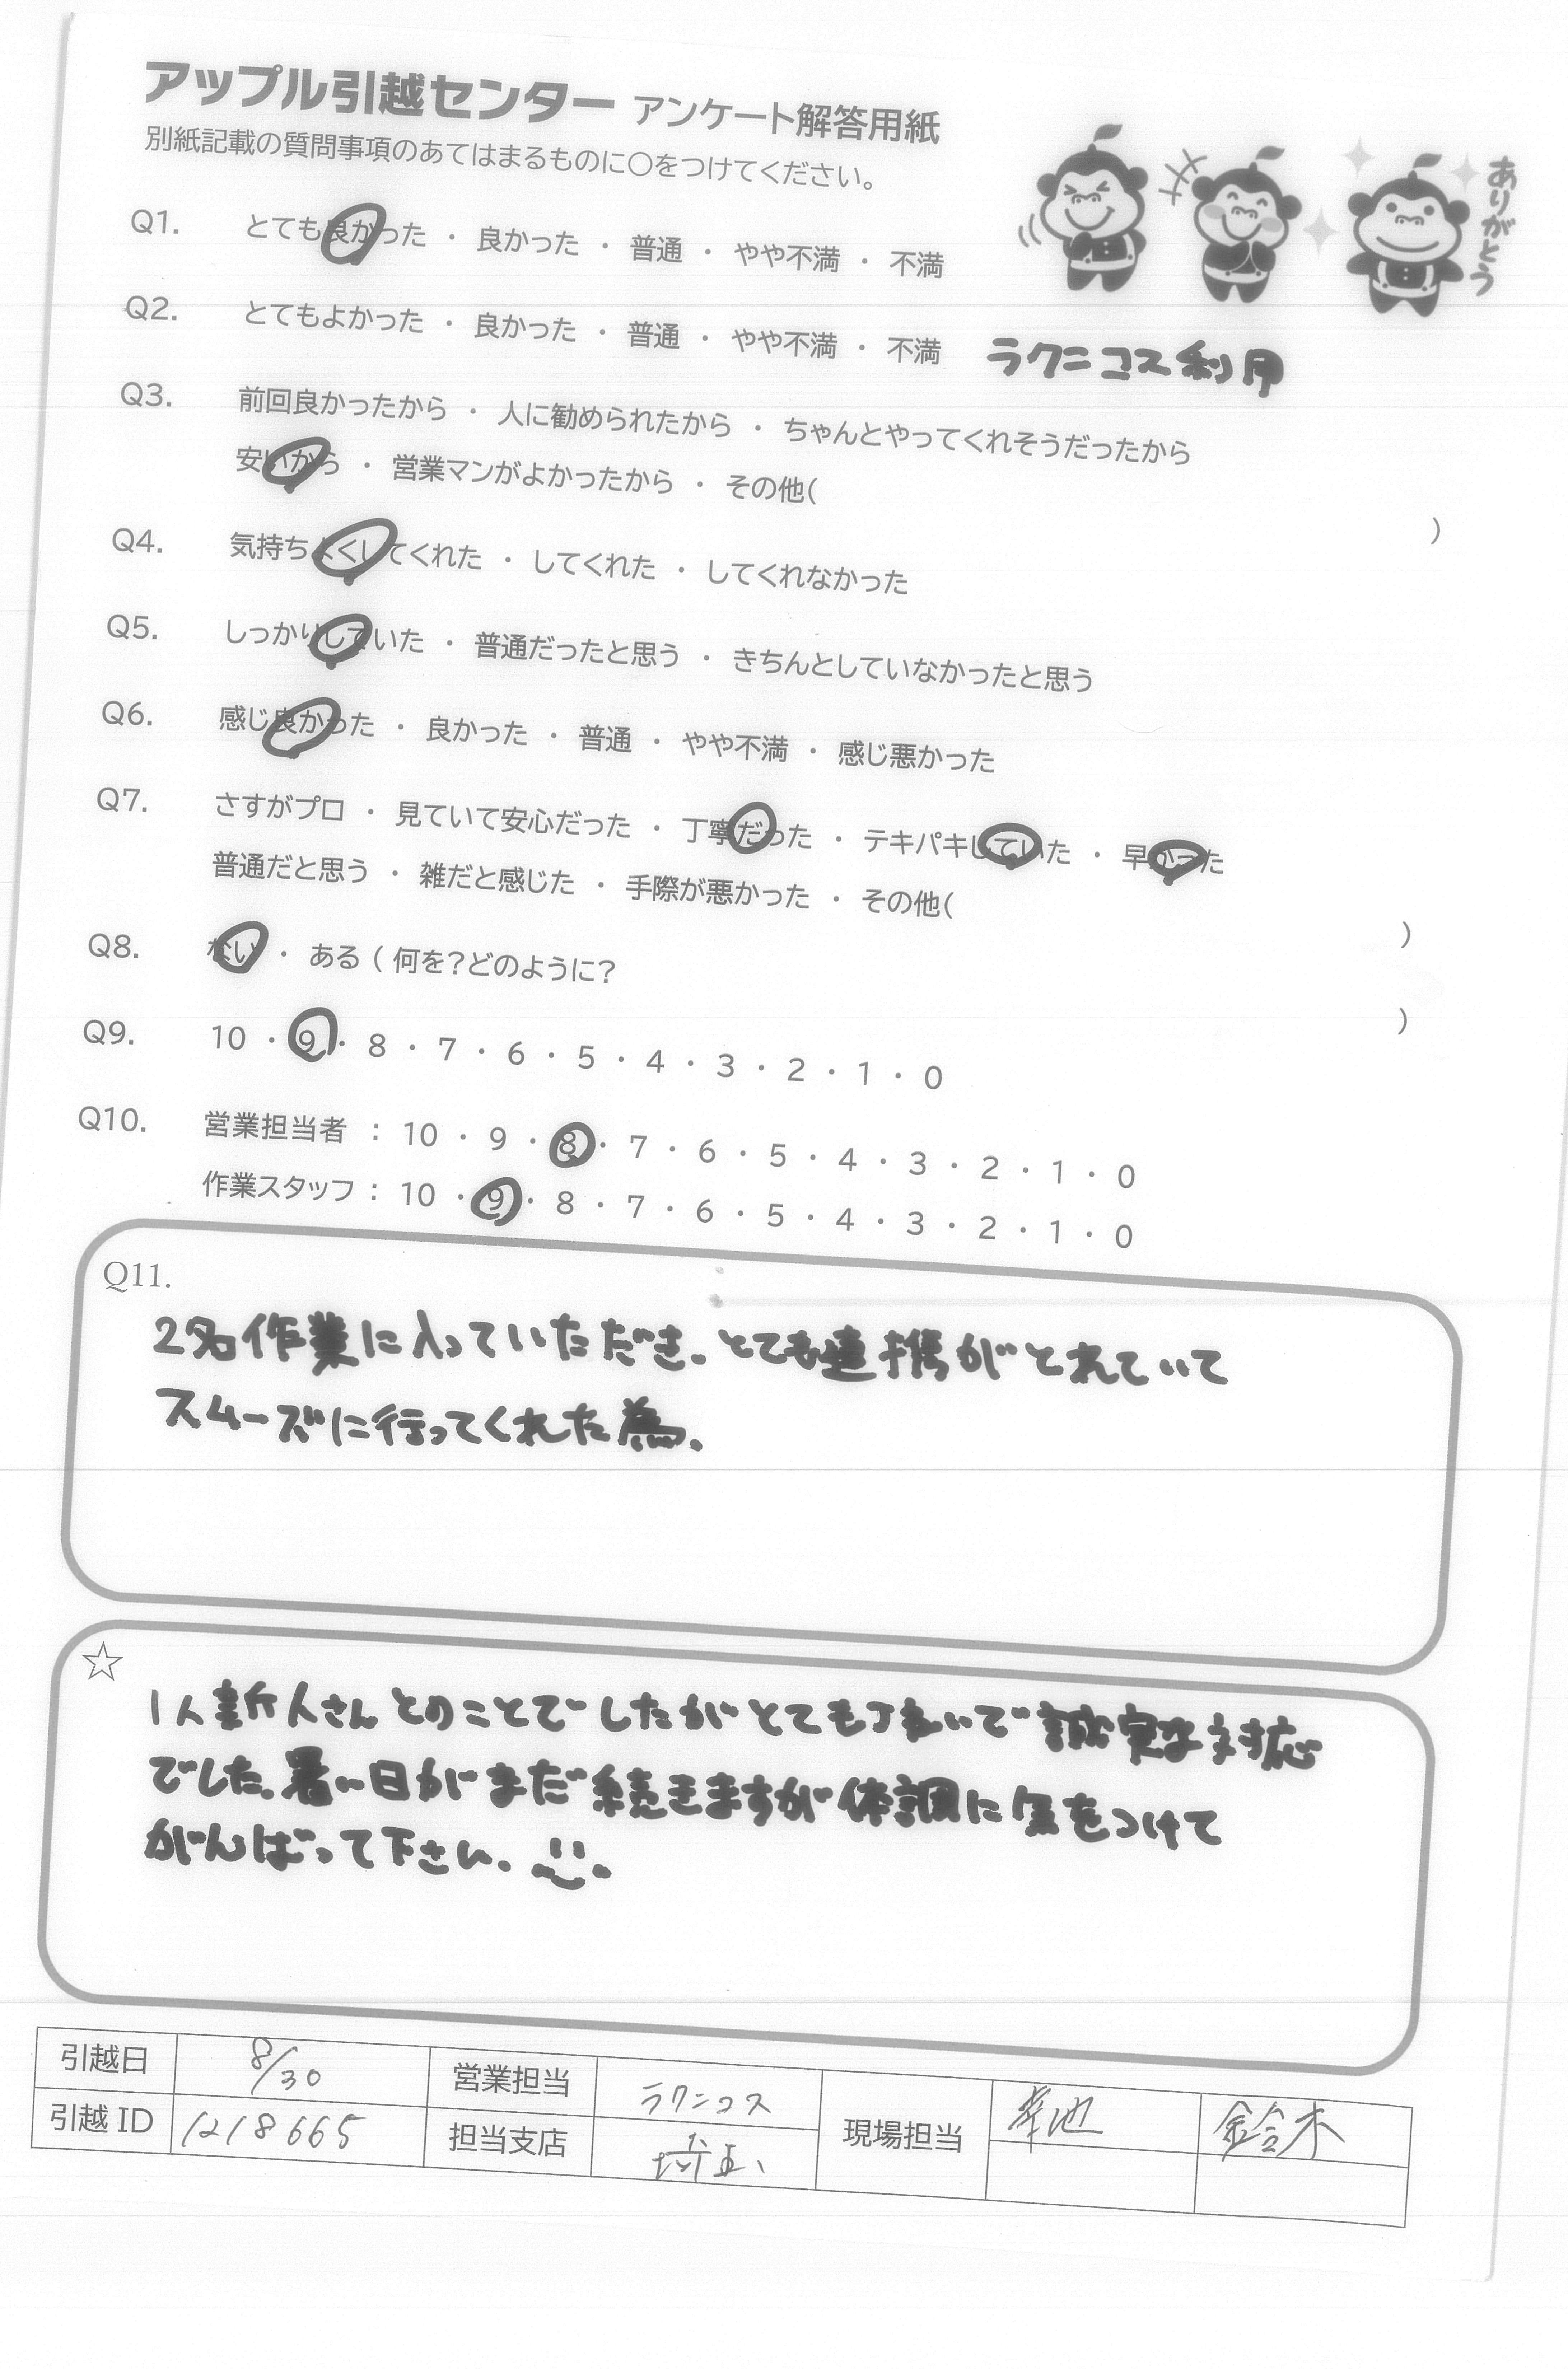 アップル引越センター アンケート解答用紙
別紙記載の質問事項のあてはまるものに〇をつけてください。
ありがとう
Q1. とても良かった ・ 良かった ・ 普通 ・ やや不満 ・ 不満
Q2. とてもよかった ・ 良かった ・ 普通 ・ やや不満 ・ 不満 ラクニコス利用
Q3. 前回良かったから ・ 人に勧められたから ・ ちゃんとやってくれそうだったから
安いから ・ 営業マンがよかったから ・ その他( )
Q4. 気持ちよくしてくれた ・ してくれた ・ してくれなかった
Q5. しっかりしていた ・ 普通だったと思う ・ きちんとしていなかったと思う
Q6. 感じ良かった ・ 良かった ・ 普通 ・ やや不満 ・ 感じ悪かった
Q7. さすがプロ ・ 見ていて安心だった ・ 丁寧だった ・ テキパキしていた ・ 早かった
普通だと思う ・ 雑だと感じた ・ 手際が悪かった ・ その他( )
Q8. ない ・ ある ( 何を?どのように? )
Q9. 10 ・ 9 ・ 8 ・ 7 ・ 6 ・ 5 ・ 4 ・ 3 ・ 2 ・ 1 ・ 0
Q10. 営業担当者 : 10 ・ 9 ・ 8 ・ 7 ・ 6 ・ 5 ・ 4 ・ 3 ・ 2 ・ 1 ・ 0
作業スタッフ : 10 ・ 9 ・ 8 ・ 7 ・ 6 ・ 5 ・ 4 ・ 3 ・ 2 ・ 1 ・ 0
Q11.
2名作業に入っていただき、とても連携がとれていて
スムーズに行ってくれた為。
☆
1人新人さんとのことでしたがとても丁ねいで誠実な対応
でした。暑い日がまだ続きますが体調に気をつけて
がんばって下さい。
引越日 8/30 営業担当 ラクニコス 現場担当 鈴木
引越 ID 1218665 担当支店 埼玉